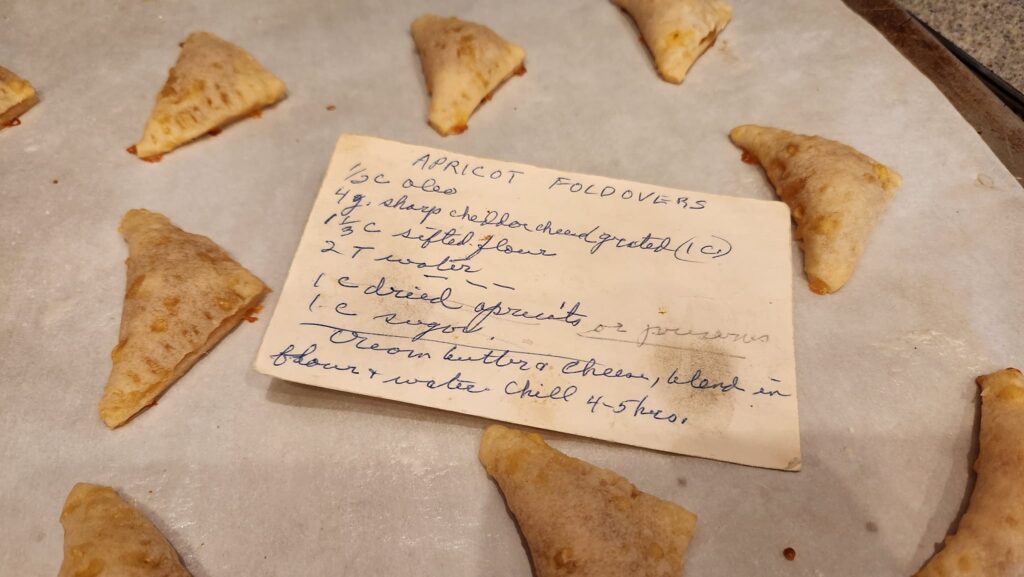 APRICOT FOLDOVERS
1/2 C oleo
4 g. sharp cheddar cheese grated (1 C)
1 1/3 C sifted flour
2 T water
1 C dried apricots or preserves
1 C sugar.
Cream butter & cheese, blend in
flour & water. Chill 4-5 hrs.